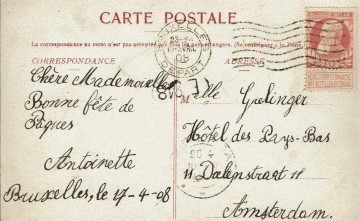 CARTE POSTALE
La correspondance au recto n'est pas acceptée par tous les pays étrangers. (Se renseigner à la Poste.)
CORRESPONDANCE
ADRESSE
BRUXELLES
DÉPART
08
Chère Mademoiselle
Bonne fête de
Pâques
Antoinette
Bruxelles, le 17-4-08
Mlle
Hôtel des Pays-Bas
11 Dalenstraat 11
Amsterdam.